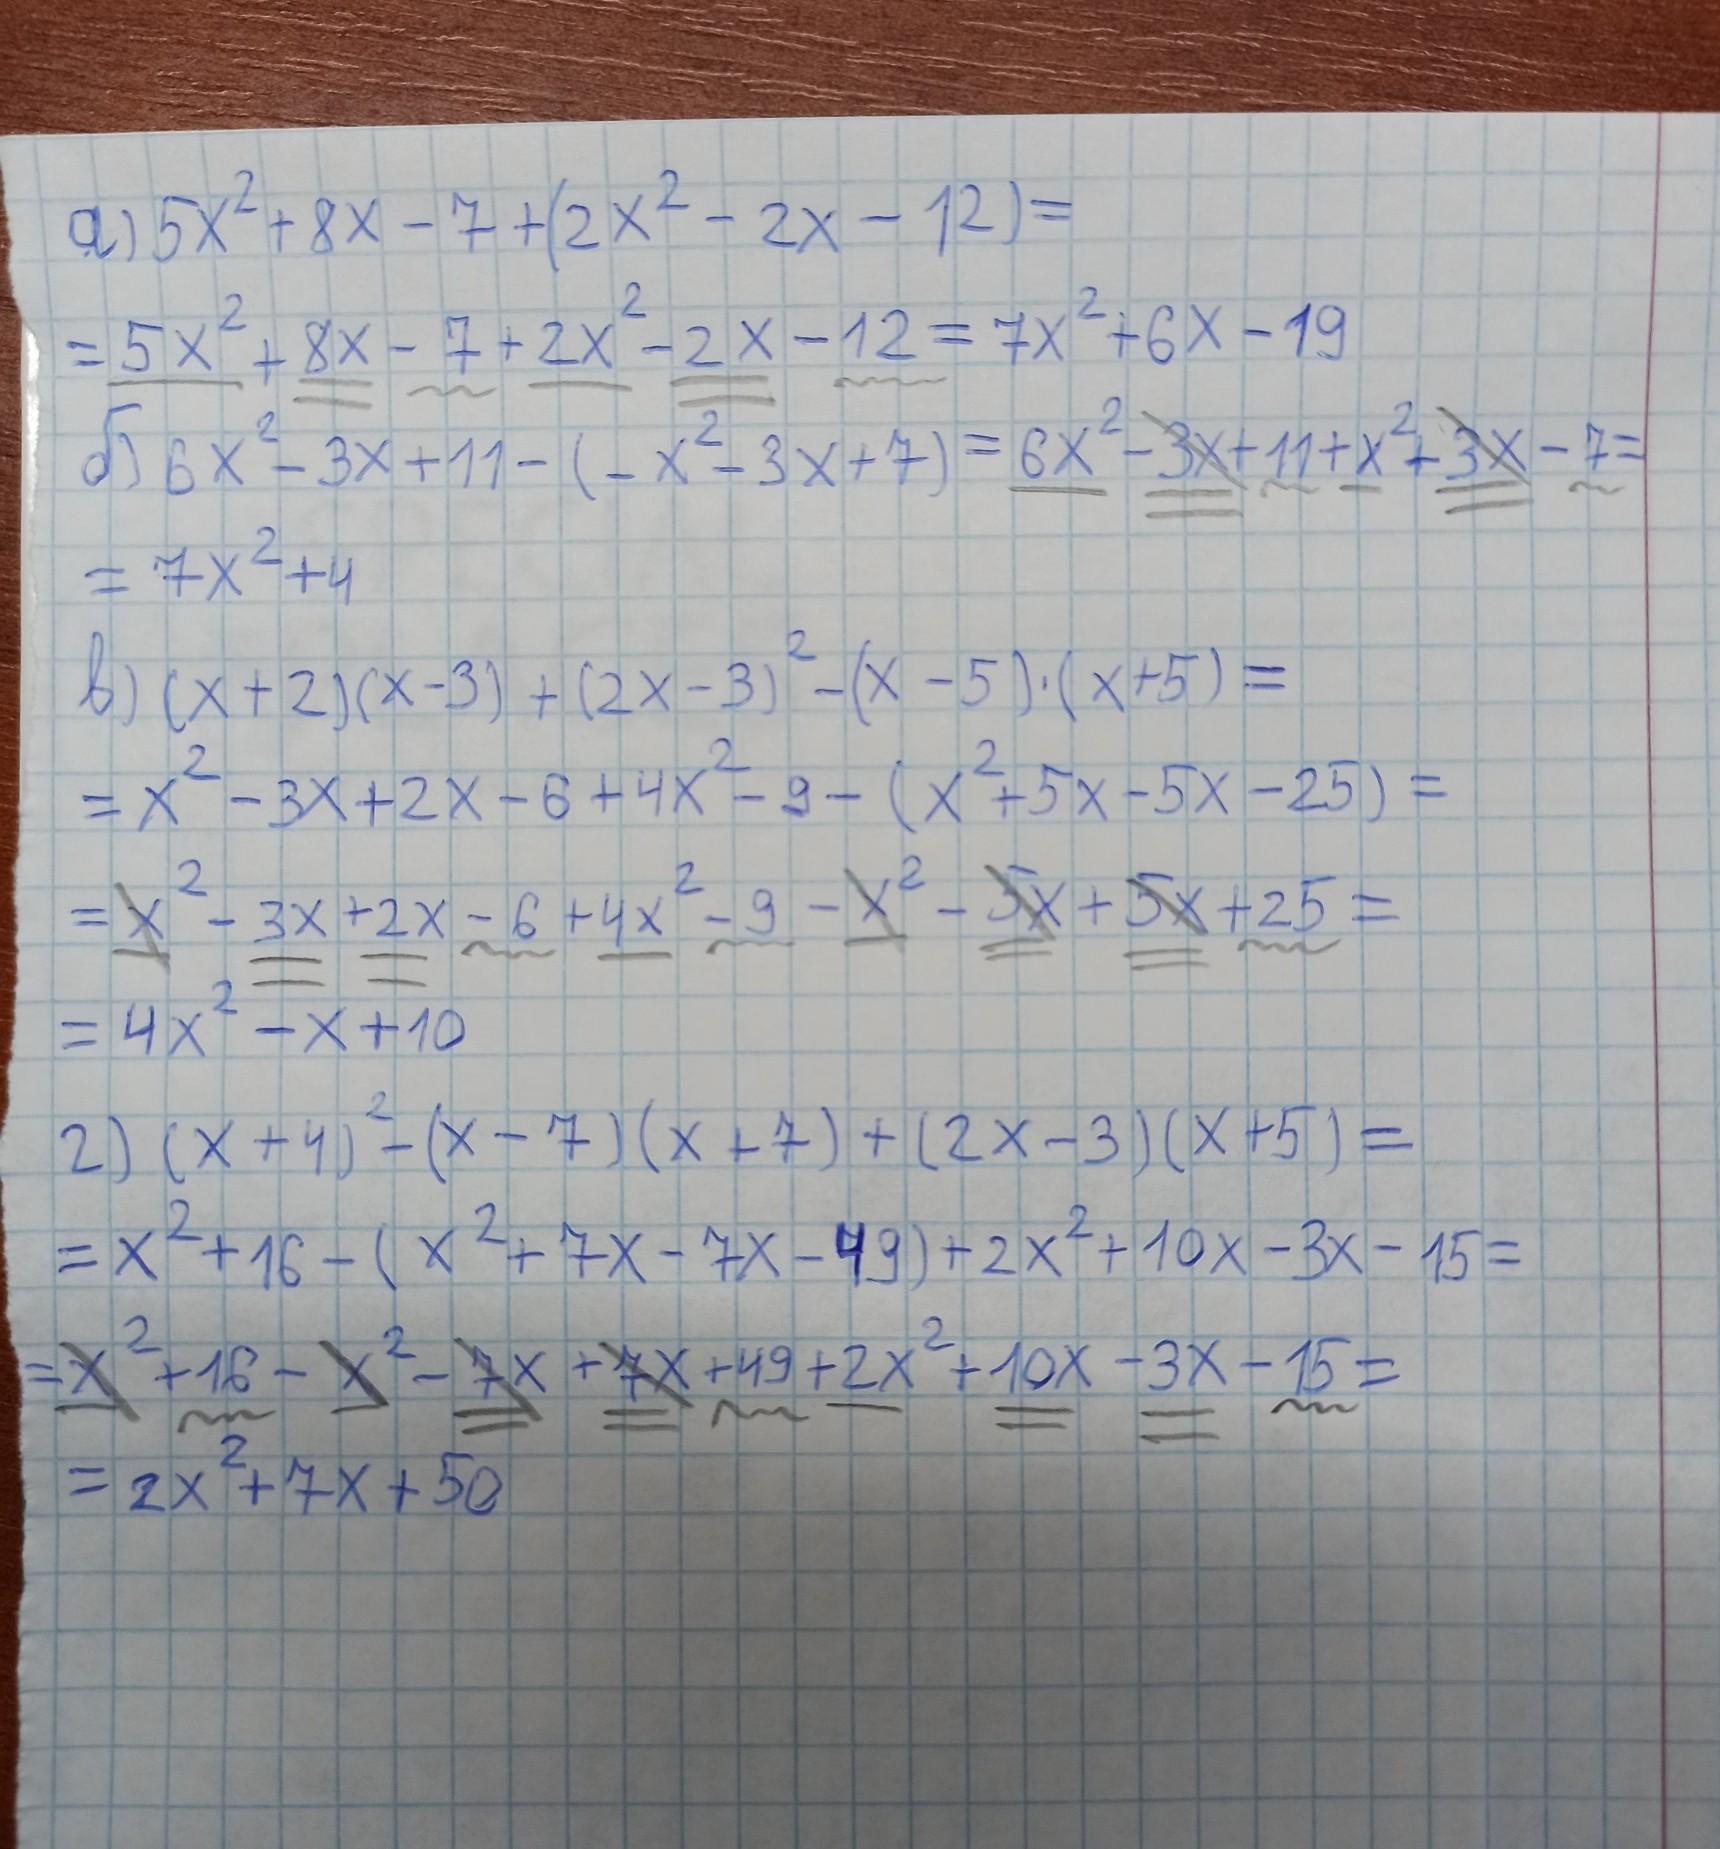 а) 5x² + 8x - 7 + (2x² - 2x - 12) =
= 5x² + 8x - 7 + 2x² - 2x - 12 = 7x² + 6x - 19
б) 6x² - 3x + 11 - (-x² - 3x + 7) = 6x² - 3x + 11 + x² + 3x - 7 =
= 7x² + 4
в) (x + 2)(x - 3) + (2x - 3)² - (x - 5)·(x + 5) =
= x² - 3x + 2x - 6 + 4x² - 9 - (x² + 5x - 5x - 25) =
= x² - 3x + 2x - 6 + 4x² - 9 - x² - 5x + 5x + 25 =
= 4x² - x + 10
г) (x + 4)² - (x - 7)(x + 7) + (2x - 3)(x + 5) =
= x² + 16 - (x² + 7x - 7x - 49) + 2x² + 10x - 3x - 15 =
= x² + 16 - x² - 7x + 7x + 49 + 2x² + 10x - 3x - 15 =
= 2x² + 7x + 50